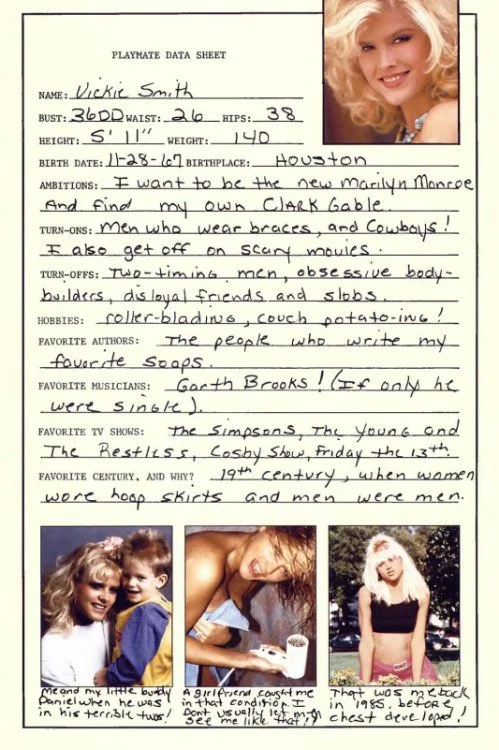 PLAYMATE DATA SHEET
NAME: Vickie Smith
BUST: 36DD WAIST: 26 HIPS: 38
HEIGHT: 5' 11" WEIGHT: 140
BIRTH DATE: 11-28-67 BIRTHPLACE: Houston
AMBITIONS: I want to be the new Marilyn Monroe
And find my own Clark Gable.
TURN-ONS: Men who wear braces, and Cowboys!
I also get off on scary movies.
TURN-OFFS: Two-timing men, obsessive body-
builders, disloyal friends and slobs.
HOBBIES: roller-blading, couch potato-ing!
FAVORITE AUTHORS: The people who write my
favorite soaps.
FAVORITE MUSICIANS: Garth Brooks! (If only he
were single).
FAVORITE TV SHOWS: The Simpsons, The Young and
The Restless, Cosby Show, Friday the 13th.
FAVORITE CENTURY, AND WHY? 19th century, when women
wore hoop skirts and men were men.
Me and my little buddy
Daniel when he was
in his terrible twos!
A girlfriend caught me
in that condition I
Dont usually let men
see me like that!?
That was me back
in 1985, before
chest developed!